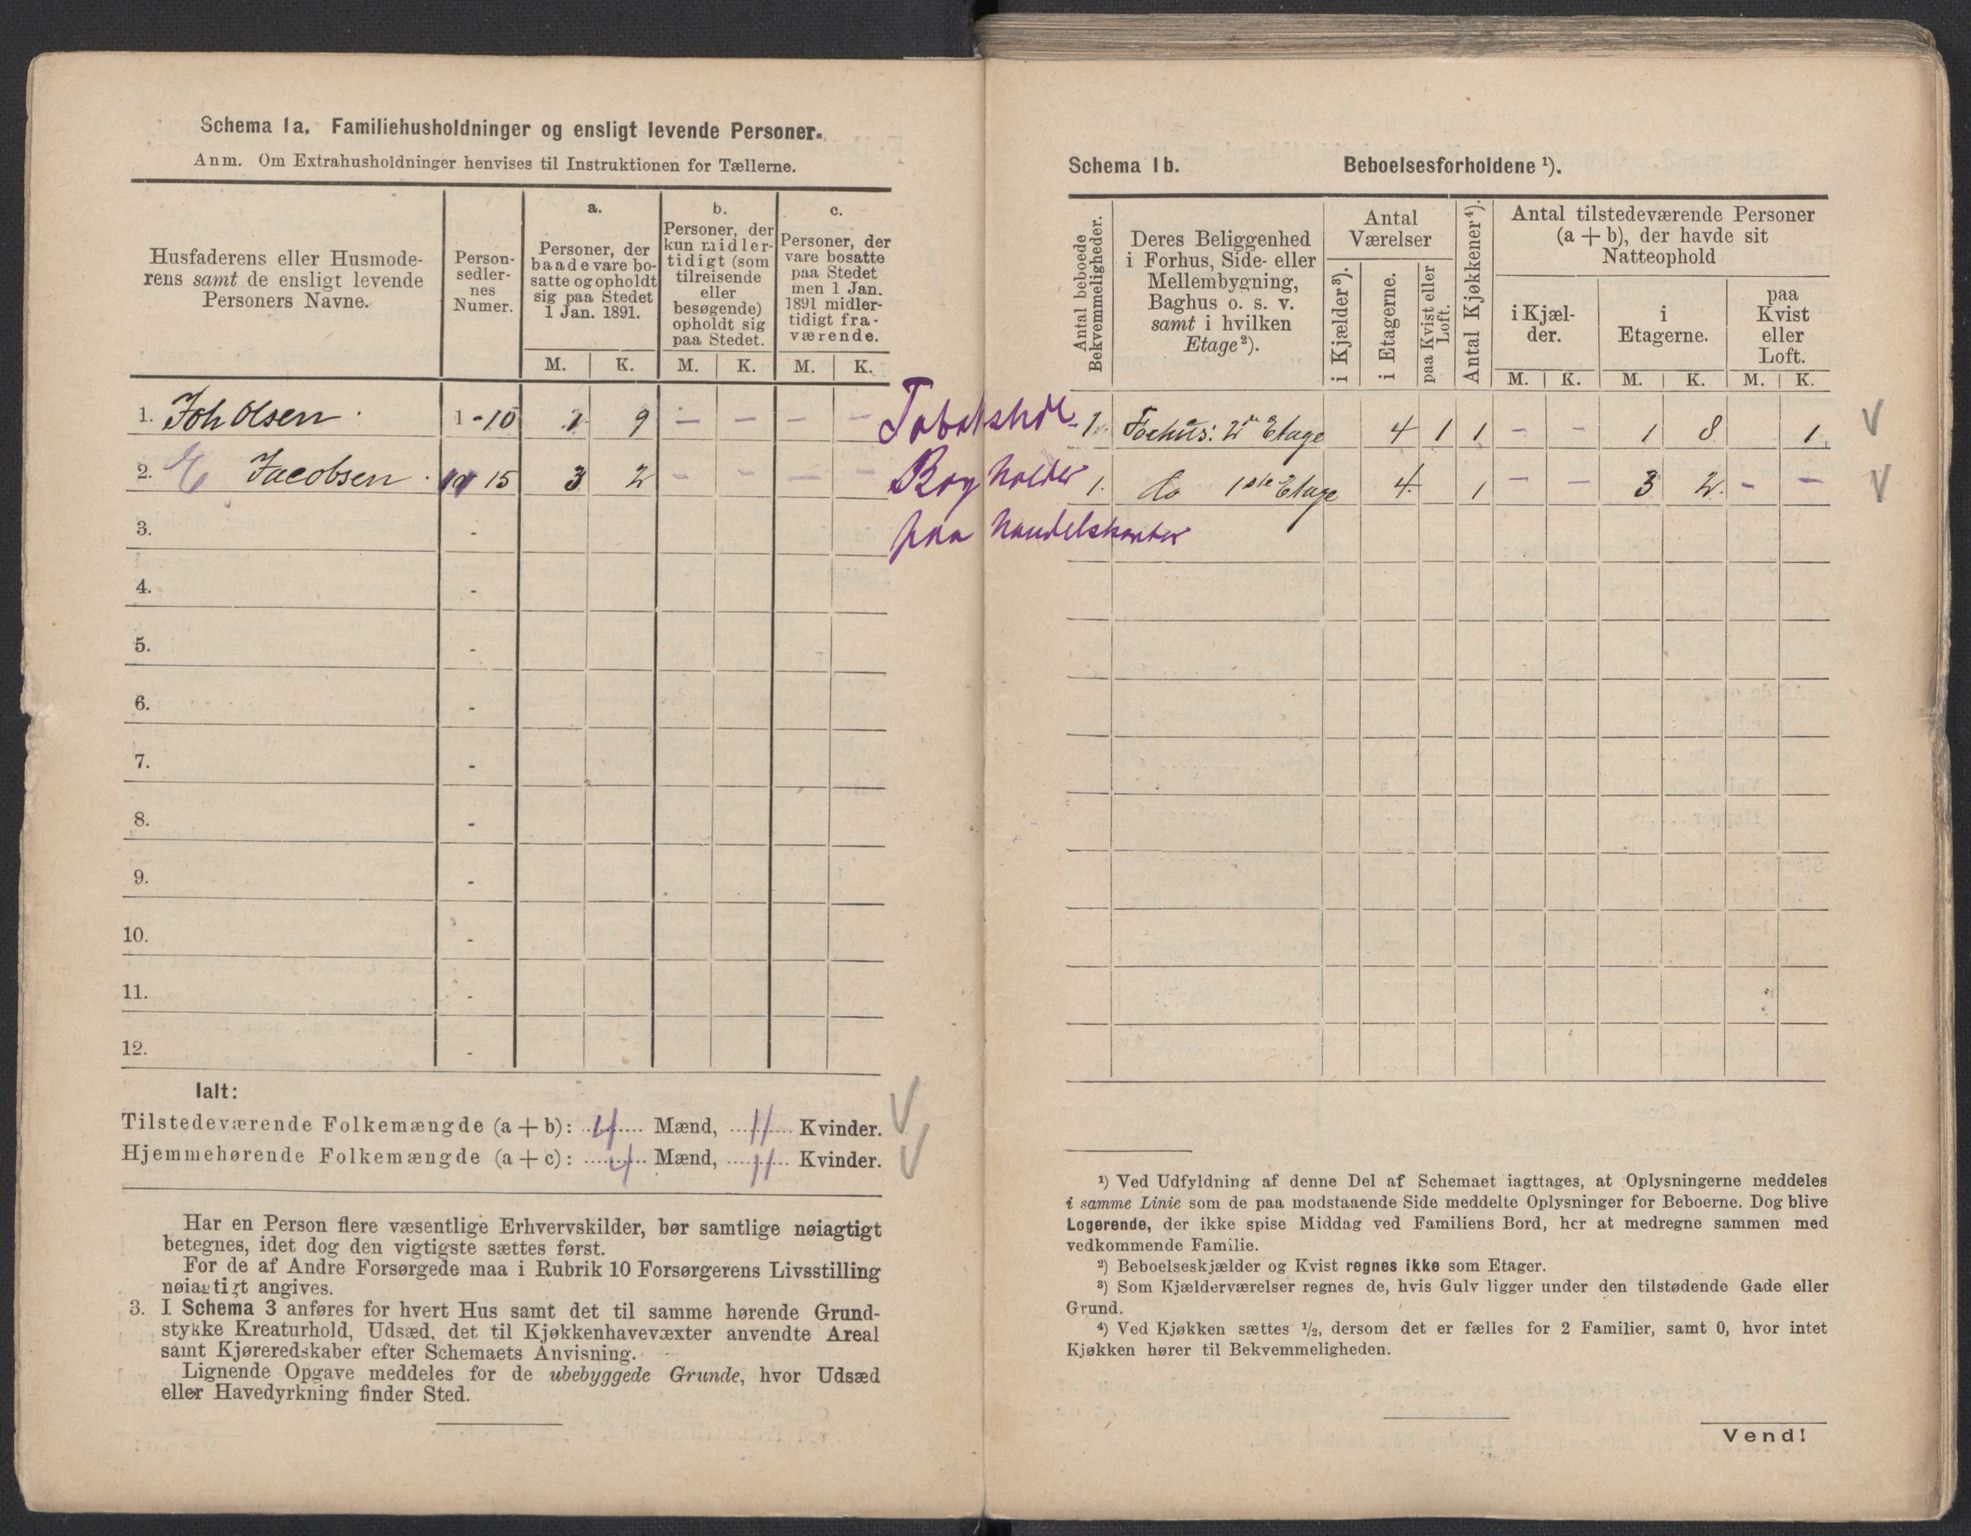 Schema 1a. Familiehusholdninger og ensligt levende Personer.
Anm. Om Extrahusholdninger henvises til Instruktionen for Tællerne.
Husfaderens eller Husmode-
rens samt de ensligt levende
Personers Navne.
Person-
sedler-
nes
Numer.
a.
Personer, der
baade vare bo-
satte og opholdt
sig paa Stedet
1 Jan. 1891.
b.
Personer, der
kun midler-
tidigt (som
tilreisende
eller
besøgende)
opholdt sig
paa Stedet.
c.
Personer, der
vare bosatte
paa Stedet
men 1 Jan.
1891 midler-
tidigt fra-
værende.
M. K. M. K. M. K.
1. Joh Olsen 1-10 1 9 — — — — Tobakshdl.
2. E Jacobsen 11 15 3 2 - - — — Bogholder
3. - paa handelskontor
4. -
5. -
6. -
7. -
8. -
9. -
10. -
11. -
12. -
Ialt:
Tilstedeværende Folkemængde (a + b): 4 Mænd, 11 Kvinder.
Hjemmehørende Folkemængde (a + c): 4 Mænd, 11 Kvinder.
Har en Person flere væsentlige Erhvervskilder, bør samtlige nøiagtigt
betegnes, idet dog den vigtigste sættes først.
For de af Andre Forsørgede maa i Rubrik 10 Forsørgerens Livsstilling
nøiagtigt angives.
3. I Schema 3 anføres for hvert Hus samt det til samme hørende Grund-
stykke Kreaturhold, Udsæd, det til Kjøkkenhavevæxter anvendte Areal
samt Kjøreredskaber efter Schemaets Anvisning.
Lignende Opgave meddeles for de ubebyggede Grunde, hvor Udsæd
eller Havedyrkning finder Sted.
Schema 1b. Beboelsesforholdene ¹).
Antal beboede
Bekvemmeligheder.
Deres Beliggenhed
i Forhus, Side- eller
Mellembygning,
Baghus o. s. v.
samt i hvilken
Etage²).
Antal
Værelser
i Kjælder³).
i Etagerne.
paa Kvist eller
Loft.
Antal Kjøkkener⁴).
Antal tilstedeværende Personer
(a + b), der havde sit
Natteophold
i Kjæl-
der.
i
Etagerne.
paa
Kvist
eller
Loft.
M. K. M. K. M. K.
1. Forhus: 2den Etage 4 1 1 - - 1 8 1 V
1. do 1ste Etage 4. 1 - - 3 2. - - V
¹) Ved Udfyldning af denne Del af Schemaet iagttages, at Oplysningerne meddeles
i samme Linie som de paa modstaaende Side meddelte Oplysninger for Beboerne. Dog blive
Logerende, der ikke spise Middag ved Familiens Bord, her at medregne sammen med
vedkommende Familie.
²) Beboelseskjælder og Kvist regnes ikke som Etager.
³) Som Kjælderværelser regnes de, hvis Gulv ligger under den tilstødende Gade eller
Grund.
⁴) Ved Kjøkken sættes ½, dersom det er fælles for 2 Familier, samt 0, hvor intet
Kjøkken hører til Bekvemmeligheden.
Vend!